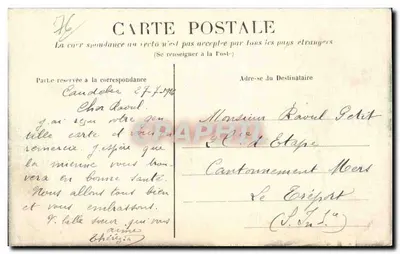 76
CARTE POSTALE
La correspondance au recto n'est pas acceptée par tous les pays étrangers
(Se renseigner à la Poste)
Partie réservée à la correspondance
Adresse du Destinataire
Caudebec 27-7-
Cher Raoul
j'ai reçue votre
carte et vous
remercie j'espère que
la mienne vous trou
vera en bonne santé.
Nous allons tous bien
et vous embrassons.
Vr belle soeur qui vous
aime
Thérèse
Monsieur Raoul Petit
d'Etape
Cantonnement Mers
Le Tréport
(S. Inf.)